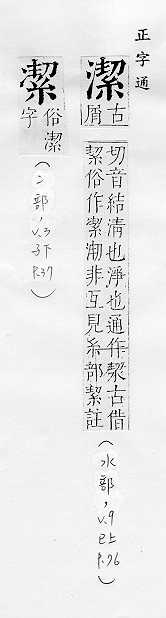 正字通
潔 古屑
切音結清也淨也通作絜古借
絜俗作㓗非互見糸部絜註
(水部, V.9 巳上 P.76)
㓗 俗潔字
(冫部, V.3 子下 P.37)